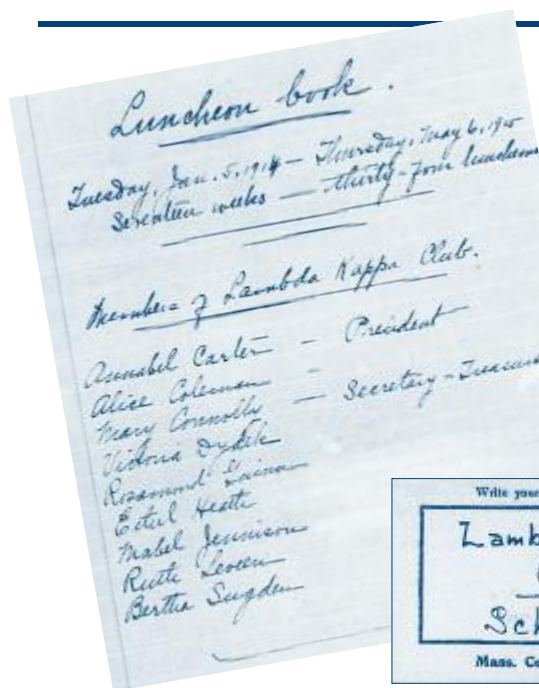 Luncheon book.
Tuesday, Jan. 5, 1914 — Thursday, May 6, 1915
Seventeen weeks — thirty-four luncheons
Members of Lambda Kappa Club.
Annabel Carter — President
Alice Coleman -
Mary Connolly — Secretary-Treasure
Victoria Dydek
Rosamond
Ethel Heath
Mabel Jennison
Ruth Leveen
Bertha Sugden
Write your
Lamb
Sch
Mass. Co